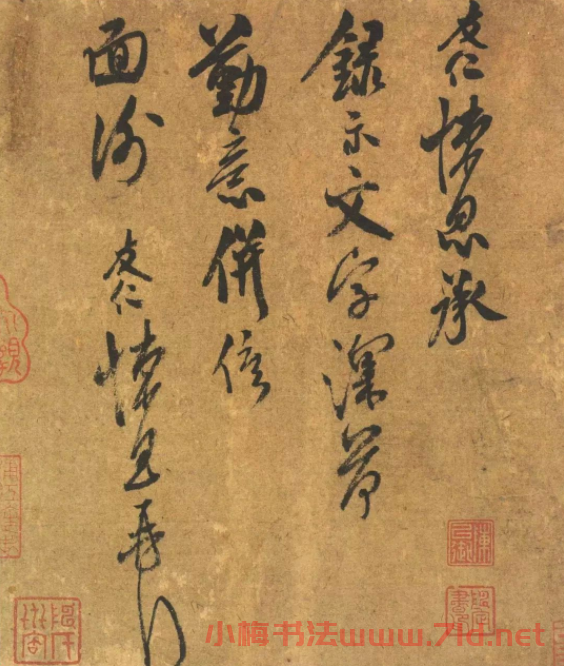 友仁悚息承
録示文字深荷
勤意併俟
面謝 友仁悚息再拜
小梅书法www.7ld.net